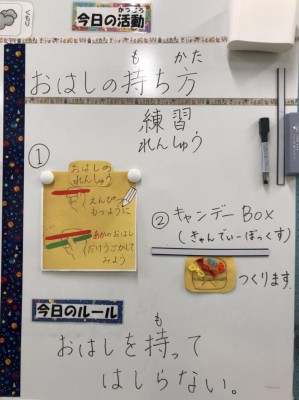 今日の活動
かつどう
も かた
おはしの持ち方
練習
れんしゅう
①
おはしの
れんしゅう
えんぴつ
もつように
あかのおはし
だけうごかして
みよう
② キャンデーBOX
(きゃんでぃーぼっくす)
つくります
今日のルール
も
おはしを持って
はしらない。